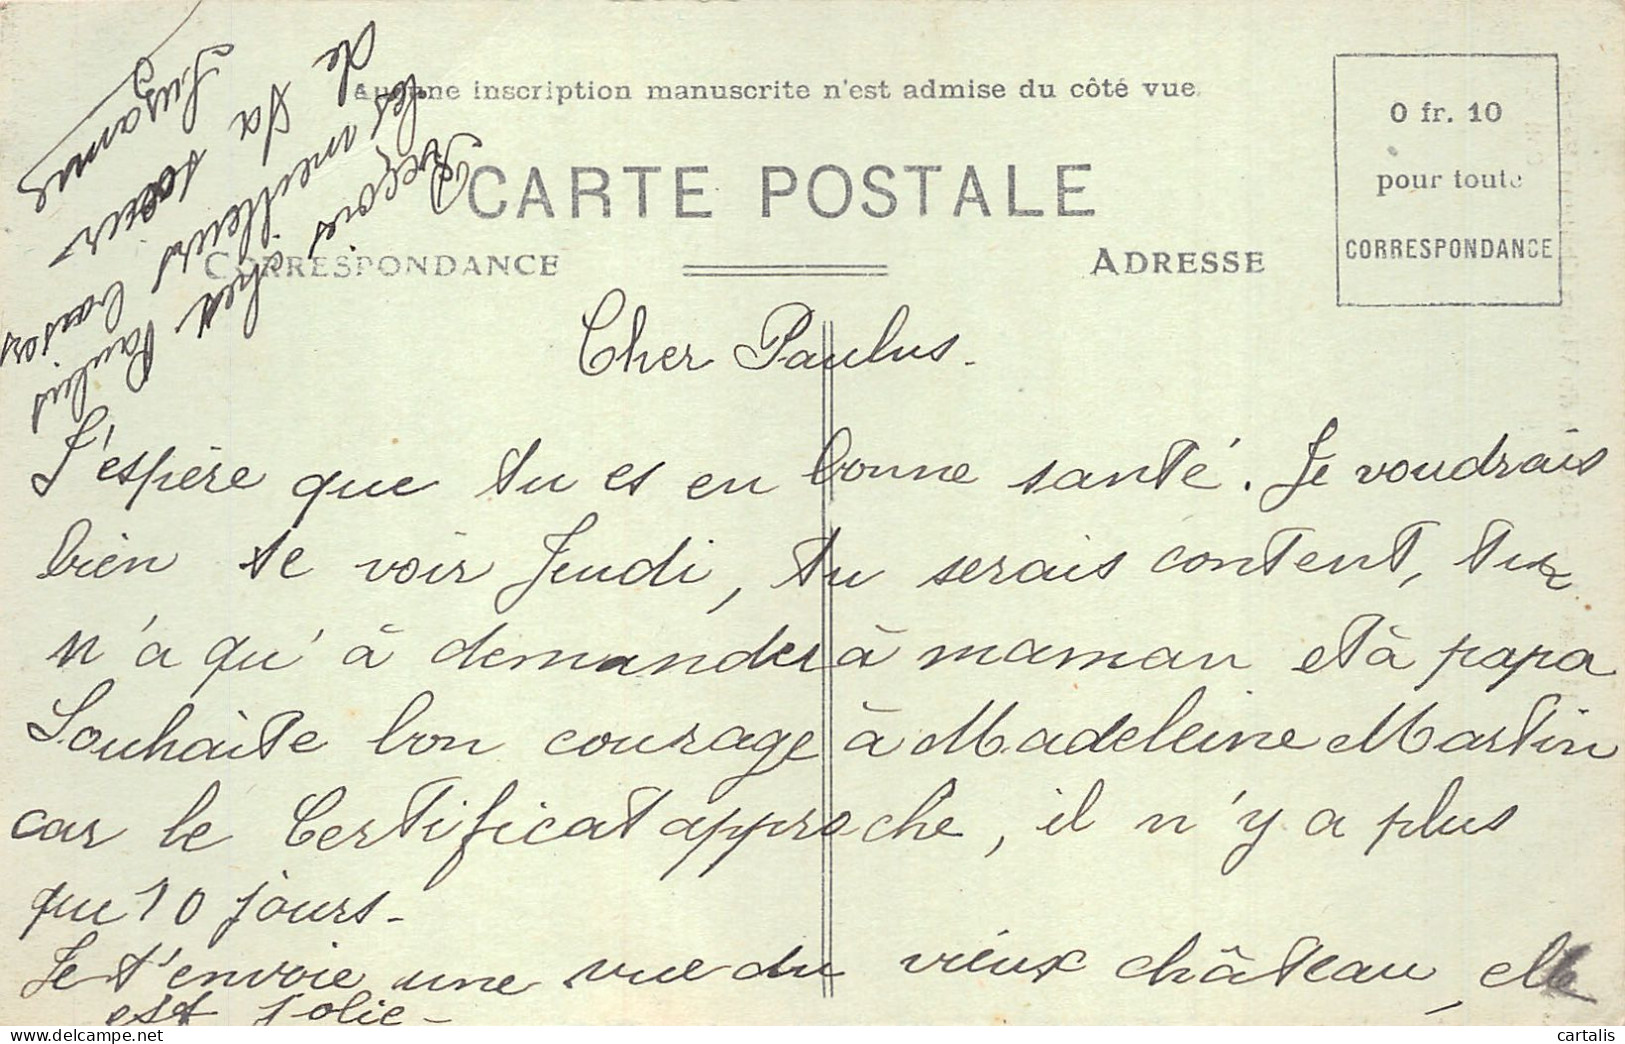 Aucune inscription manuscrite n'est admise du côté vue
CARTE POSTALE
CORRESPONDANCE
ADRESSE
0 fr. 10
pour toute
CORRESPONDANCE
Cher Paulus.
J'espère que tu es en bonne santé. Je voudrais
bien te voir Jeudi, tu serais content, tu
n'a qu'à demander à maman et à papa
Souhaite bon courage à Madeleine Martin
car le Certificat approche, il n'y a plus
que 10 jours.
Je t'envoie une vue du vieux château, elle
est jolie -
Reçois cher Paulus
les meilleurs baisers
de
ta soeur
Suzanne
cartalis